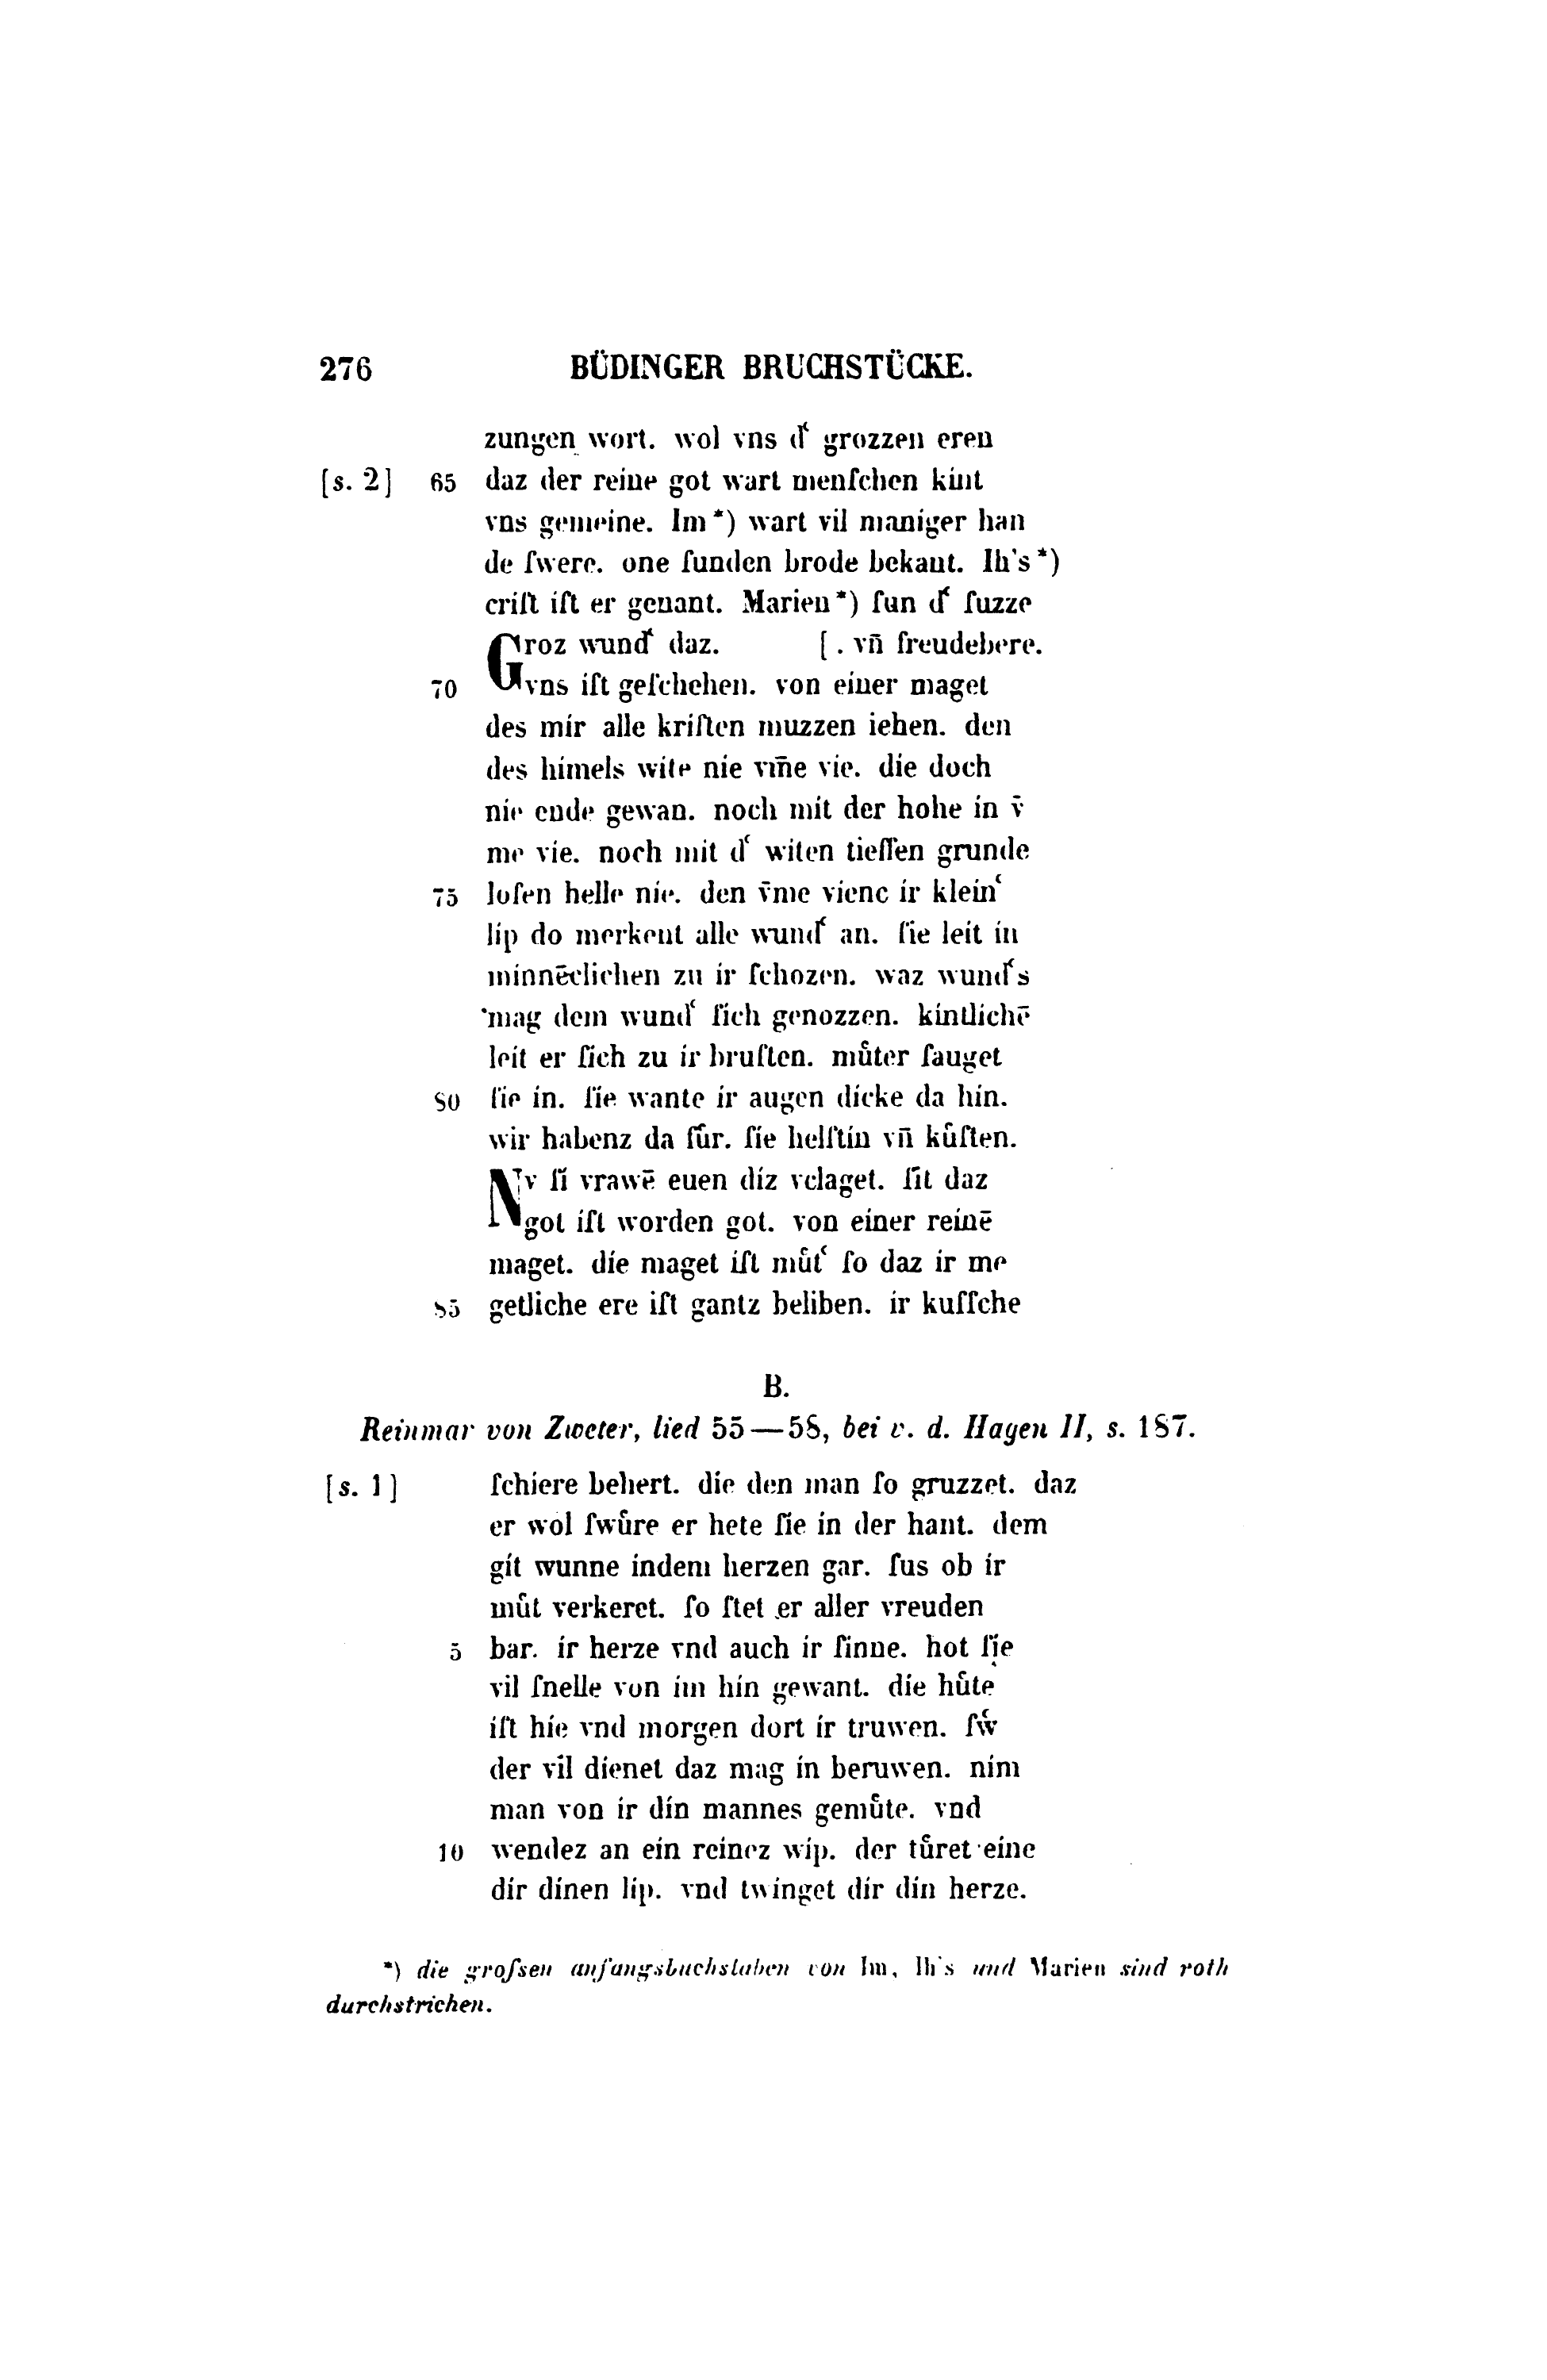 276 BÜDINGER BRUCHSTÜCKE.
zungen wort. wol vns dˤ grozzen eren
[s. 2] 65 daz der reine got wart menſchen kint
vns gemeine. Im*) wart vil maniger han
de ſwere. one ſunden brode bekant. Ih's*)
criſt iſt er genant. Marien*) ſun dˤ ſuzze
Groz wundˤ daz. [. vn̄ freudebere.
70 vns iſt geſchehen. von einer maget
des mir alle kriſten muzzen iehen. den
des himels wite nie vm̄e vie. die doch
nie ende gewan. noch mit der hohe in v̄
me vie. noch mit dˤ witen tieffen grunde
75 loſen helle nie. den v̄me vienc ir kleinˤ
lip do merkent alle wundˤ an. ſie leit in
minnēclichen zu ir ſchozen. waz wundˤs
mag dem wundˤ ſich genozzen. kintlichē
leit er ſich zu ir bruſten. můter ſauget
80 ſie in. ſie wante ir augen dicke da hin.
wir habenz da fůr. ſie helſtin vn̄ kůſten.
Nv ſi vrawē euen diz vclaget. ſit daz
got iſt worden got. von einer reinē
maget. die maget iſt můtˤ ſo daz ir me
85 getliche ere iſt gantz beliben. ir kuſſche
B.
Reinmar von Zweter, lied 55—58, bei v. d. Hagen II, s. 187.
[s. 1] ſchiere behert. die den man ſo gruzzet. daz
er wol ſwůre er hete ſie in der hant. dem
git wunne indem herzen gar. ſus ob ir
můt verkeret. ſo ſtet er aller vreuden
5 bar. ir herze vnd auch ir ſinne. hot ſie
vil ſnelle von im hin gewant. die hůte
iſt hie vnd morgen dort ir truwen. ſwˤ
der vil dienet daz mag in beruwen. nim
man von ir din mannes gemůte. vnd
10 wendez an ein reinez wip. der tůret eine
dir dinen lip. vnd twinget dir din herze.
*) die groſsen anfangsbuchstaben von Im, Ih's und Marien sind roth
durchstrichen.